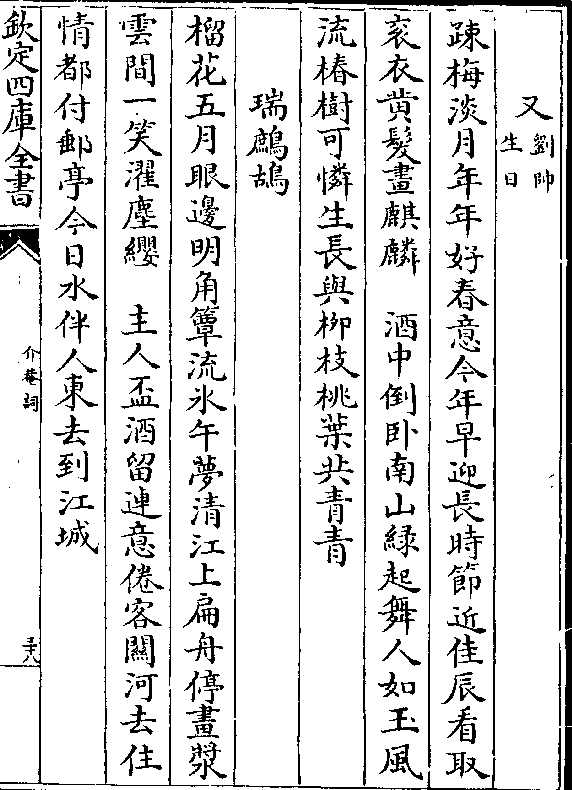 又劉帥生日
踈梅淡月年年好春意今年早迎長時節近佳辰看取
衮衣黄髮畫麒麟　酒中倒卧南山緑起舞人如玉風
流椿樹可憐生長與栁枝桃葉共青青
瑞鷓鴣
榴花五月眼邊明角簟流氷午夢清江上扁舟停畫漿
雲間一笑濯塵纓　主人盃酒留連意倦客關河去住
情都付郵亭今日水伴人東去到江城
欽定四庫全書
介菴詞
三十八